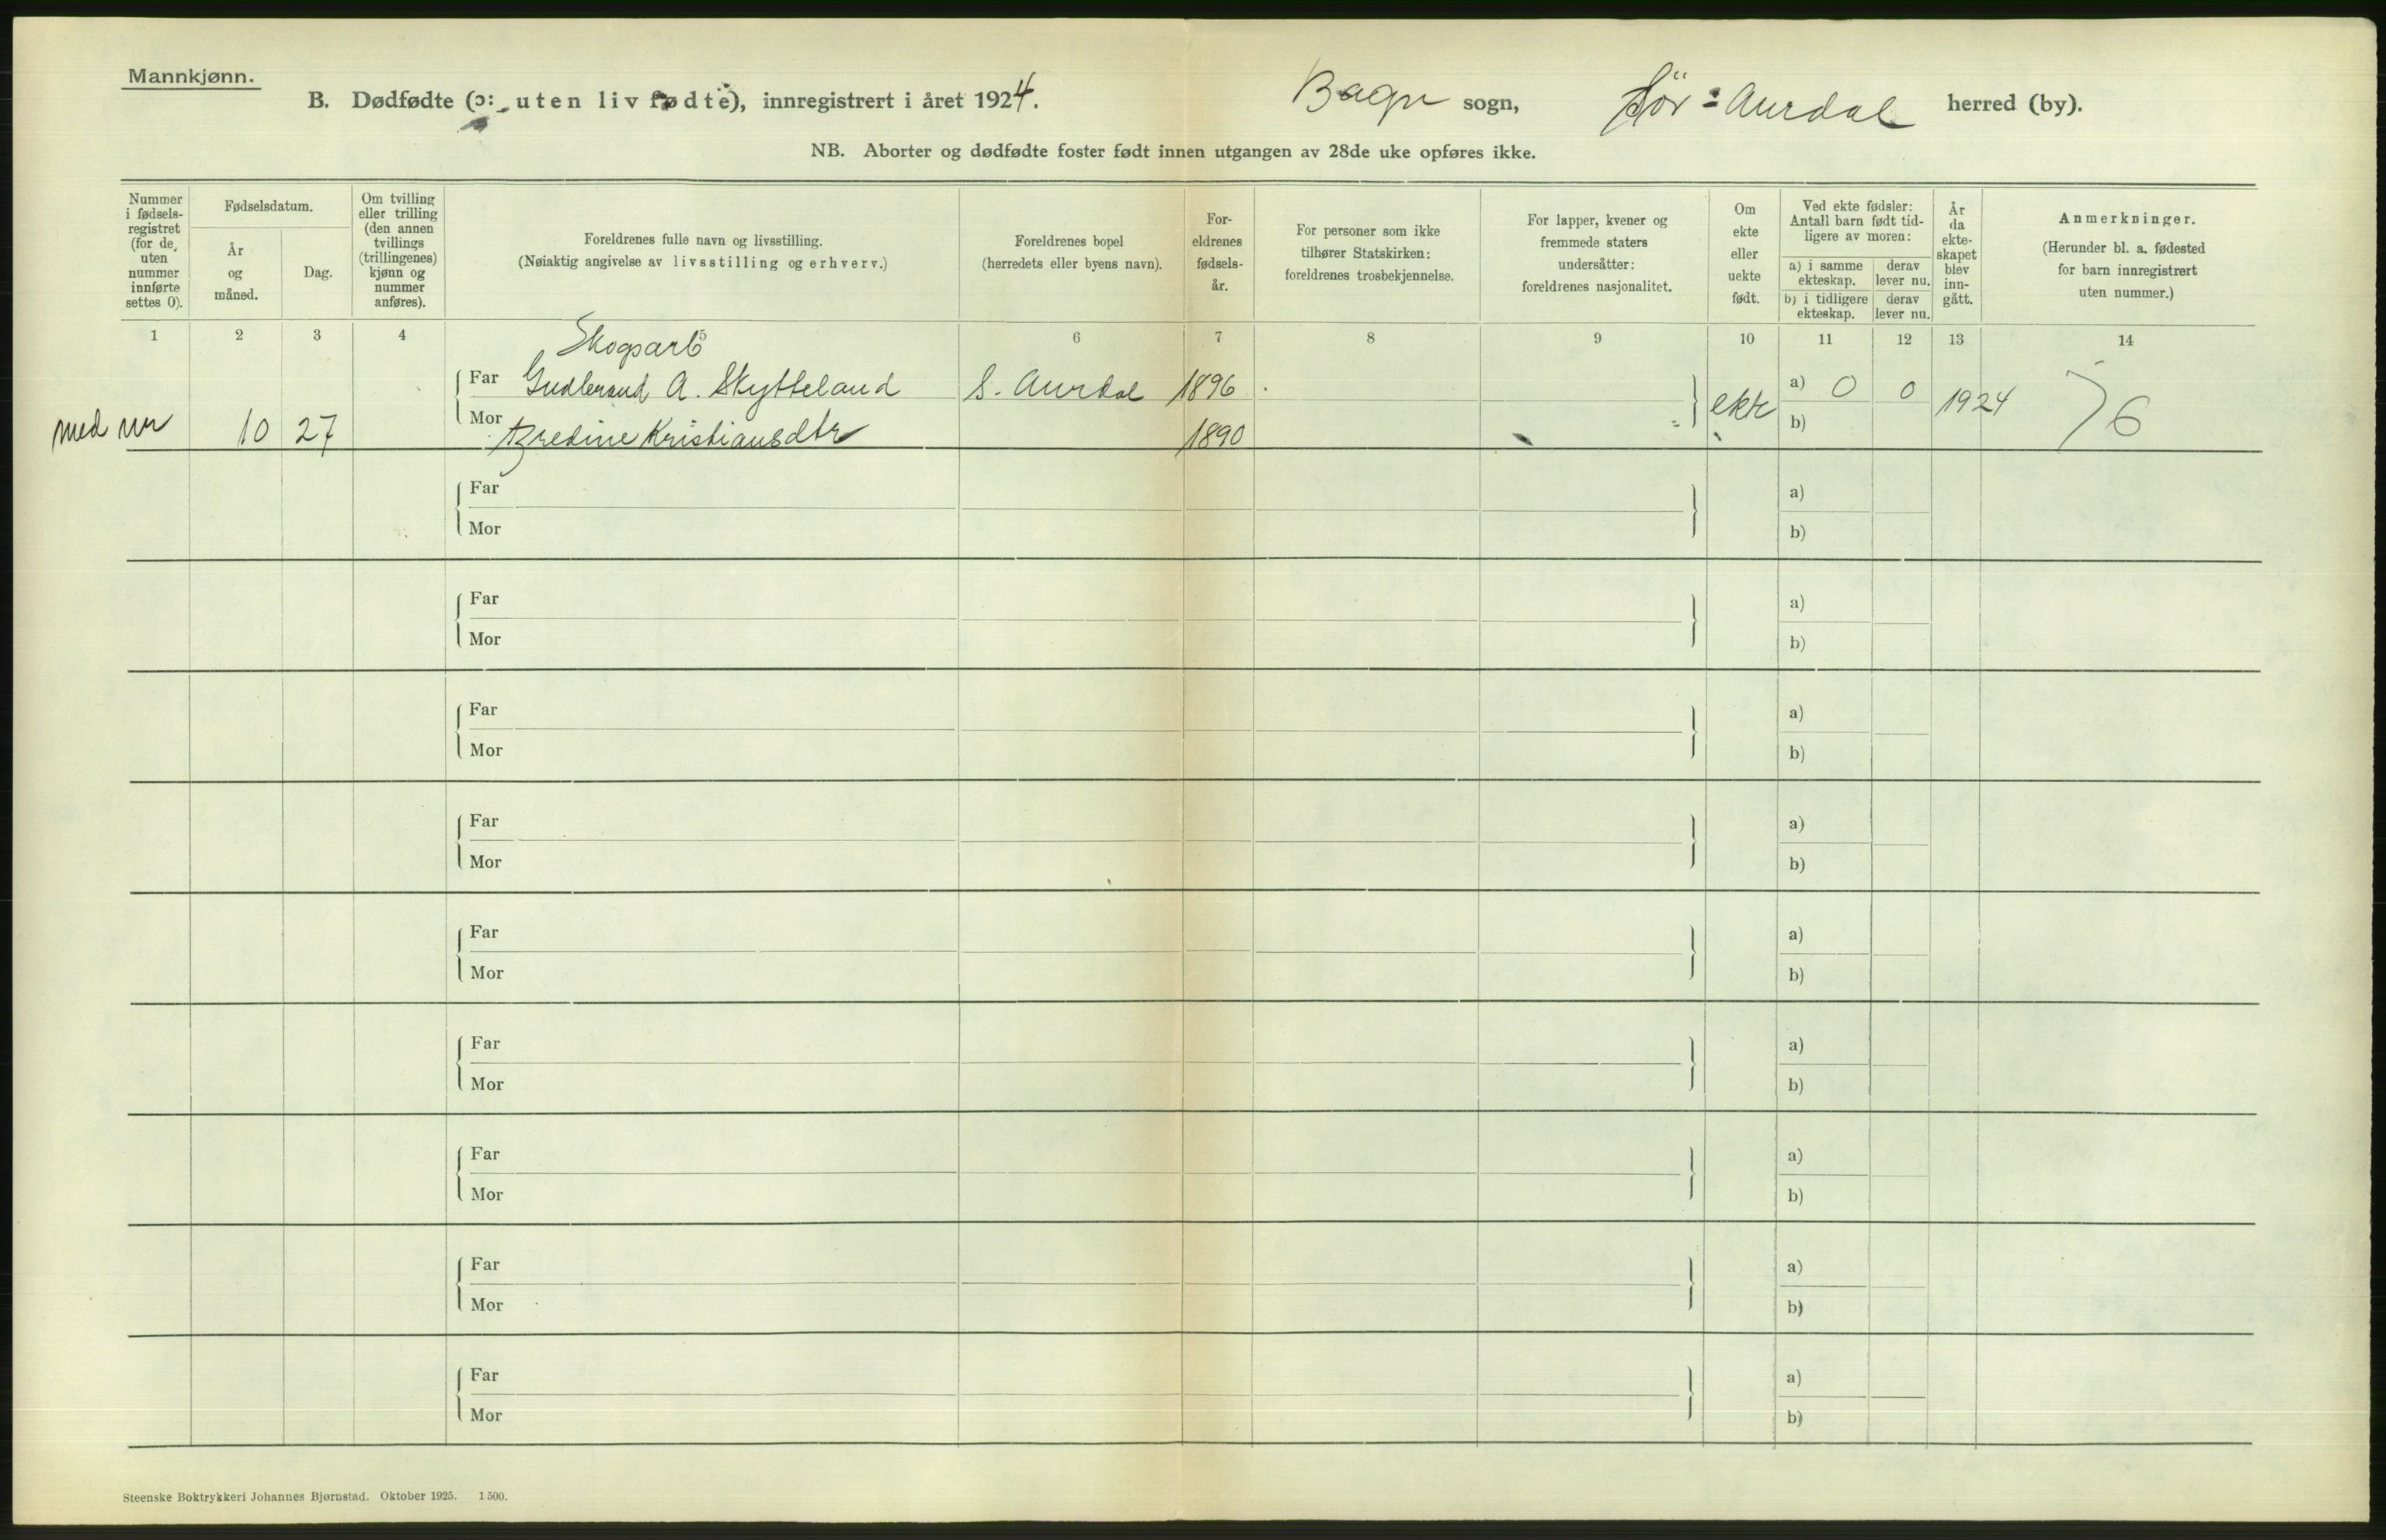 Mannkjønn.
B. Dødfødte (ɔ: uten liv fødte), innregistrert i året 1924.
Bagn sogn, Sør-Aurdal herred (by).
NB. Aborter og dødfødte foster født innen utgangen av 28de uke opføres ikke.
Nummer i fødsels-registret (for de uten nummer innførte settes 0).
Fødselsdatum.
År og måned.
Dag.
Om tvilling eller trilling (den annen tvillings (trillingenes) kjønn og nummer anføres).
Foreldrenes fulle navn og livsstilling.
(Nøiaktig angivelse av livsstilling og erhverv.)
Foreldrenes bopel
(herredets eller byens navn).
For-eldrenes fødsels-år.
For personer som ikke tilhører Statskirken: foreldrenes trosbekjennelse.
For lapper, kvener og fremmede staters undersåtter: foreldrenes nasjonalitet.
Om ekte eller uekte født.
Ved ekte fødsler: Antall barn født tid-ligere av moren:
a) i samme ekteskap.
derav lever nu.
b) i tidligere ekteskap.
derav lever nu.
År da ekte-skapet blev inn-gått.
Anmerkninger.
(Herunder bl. a. fødested for barn innregistrert uten nummer.)
1 2 3 4 5 6 7 8 9 10 11 12 13 14
Skogsarb
Far Gudbrand A. Skytteland S. Aurdal 1896 a) 0 0
med nr 10 27 ekte 1924 6
Mor Bredine Kristiansdtr 1890 b)
Far a)
Mor b)
Far a)
Mor b)
Far a)
Mor b)
Far a)
Mor b)
Far a)
Mor b)
Far a)
Mor b)
Far a)
Mor b)
Far a)
Mor b)
Far a)
Mor b)
Steenske Boktrykkeri Johannes Bjørnstad. Oktober 1925. 1500.